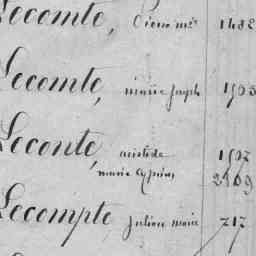 Lecomte, Pierre m.ie 1482
Lecomte, marie Joseph 1503
Leconte, aristide 1507
marie Cyprien 2469
Lecompte, Julien marie 717